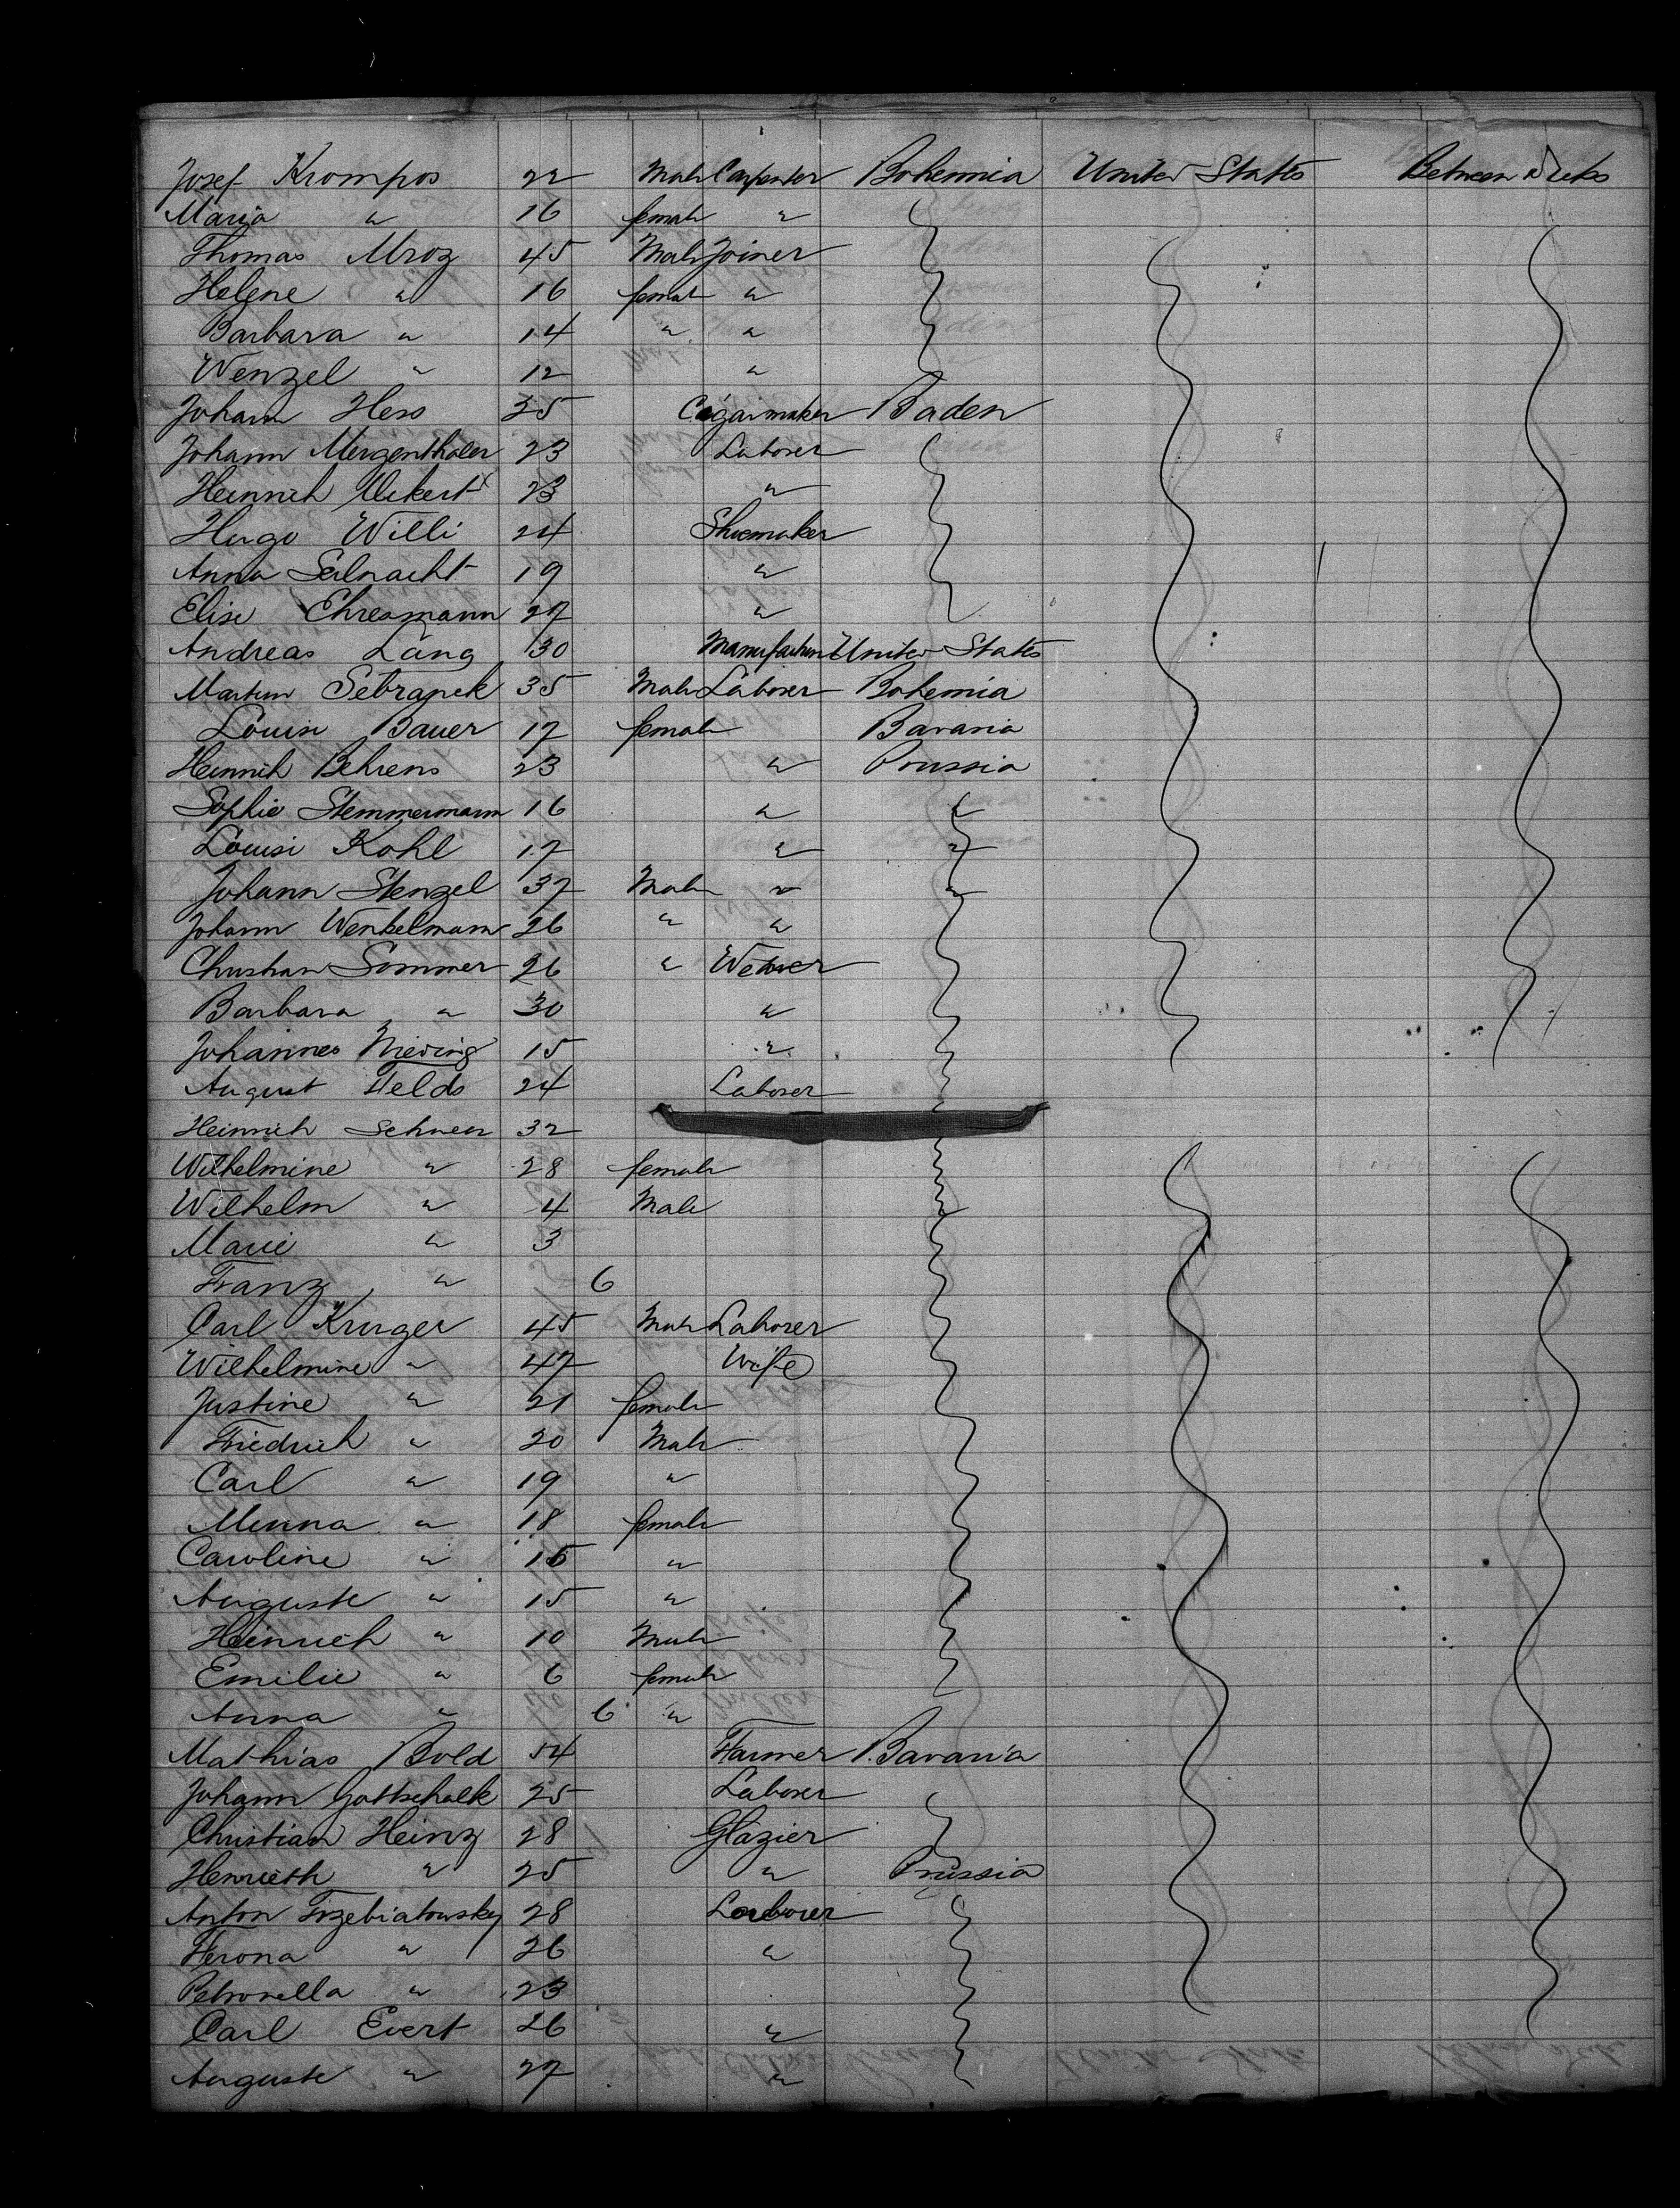 Josef Krompos 22 Male Carpenter Bohemia United States Between Decks
Maria " 16 female "
Thomas Mroz 45 Male Joiner
Helene " 16 female "
Barbara " 14 " "
Wenzel " 12 "
Johann Hess 35 Cigarmaker Baden
Johann Mergenthaler 23 Laborer
Heinrich 23 "
Hugo Willi 24 Shoemaker
Anna Selnacht 19 "
Elise Ehresmann 27 "
Andreas Lang 30 United States
Martin 35 Male Laborer Bohemia
Louise Bauer 17 female Bavaria
Heinrich Behrens 23 " Prussia
Sophie Stemmermann 16 " "
Louise Kohl 17 " "
Johann Stenzel 37 Male " "
Johann Wenkelmann 26 " "
Christian Sommer 26 " Weaver
Barbara " 30 "
Johannes 15 "
August Helds 24 Laborer
Heinrich 32
Wilhelmine " 28 female
Wilhelm " 4 Male
Marie " 3
Franz " 6
Carl Kruger 45 Male Laborer
Wilhelmine " 47 Wife
Justine " 21 female
Friedrich " 20 Male
Carl " 19 "
Minna " 18 female
Caroline " "
Auguste " 15 "
Heinrich " 10 Male
Emilie " 6 female
Anna " 6 "
Mathias Bold 54 Farmer Bavaria
Johann Gottschalk 25 Laborer
Christian Heinz 28 Glazier
Henrieth " 25 " Prussia
Anton Trzebiatowsky 28 Laborer
" 26 "
Petronella " 23
Carl Evert 26 "
Auguste " 27 "